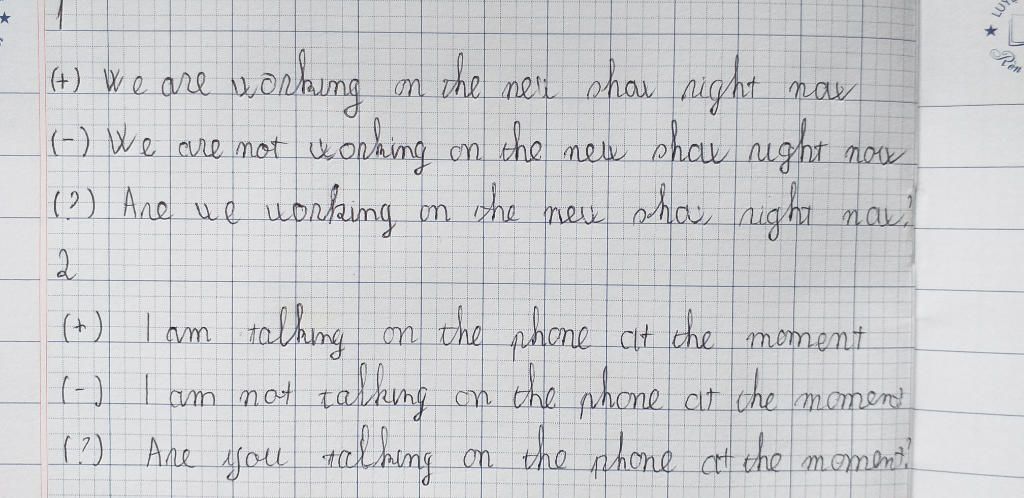 1
(+) We are working on the new show right now
(-) We are not working on the new show right now
(?) Are we working on the new show right now?
2
(+) I am talking on the phone at the moment
(-) I am not talking on the phone at the moment
(?) Are you talking on the phone at the moment?